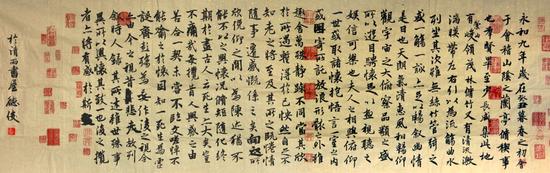 永和九年歲在癸丑暮春之初會
于會稽山陰之蘭亭脩稧事
也羣賢畢至少長咸集此地
有崇山峻領茂林脩竹又有清流激
湍暎帶左右引以為流觴曲水
列坐其次雖無絲竹管弦之
盛一觴一詠亦足以暢敘幽情
是日也天朗氣清惠風和暢仰
觀宇宙之大俯察品類之盛
所以遊目騁懷足以極視聽之
娛信可樂也夫人之相與俯仰
一世或取諸懷抱悟言一室之內
或因寄所託放浪形骸之外雖
趣舍萬殊靜躁不同當其欣
於所遇暫得於己快然自足不
知老之將至及其所之既惓情
隨事遷感慨係之矣向之所
欣俛仰之間以為陳跡猶不
能不以之興懷況脩短隨化終
期於盡古人云死生亦大矣豈
不痛哉每攬昔人興感之由
若合一契未嘗不臨文嗟悼不
能喻之於懷固知一死生為虛
誕齊彭殤為妄作後之視今
亦由今之視昔悲夫故列
敘時人錄其所述雖世殊事
異所以興懷其致一也後之攬
者亦將有感於斯文
於清西書屋德俊